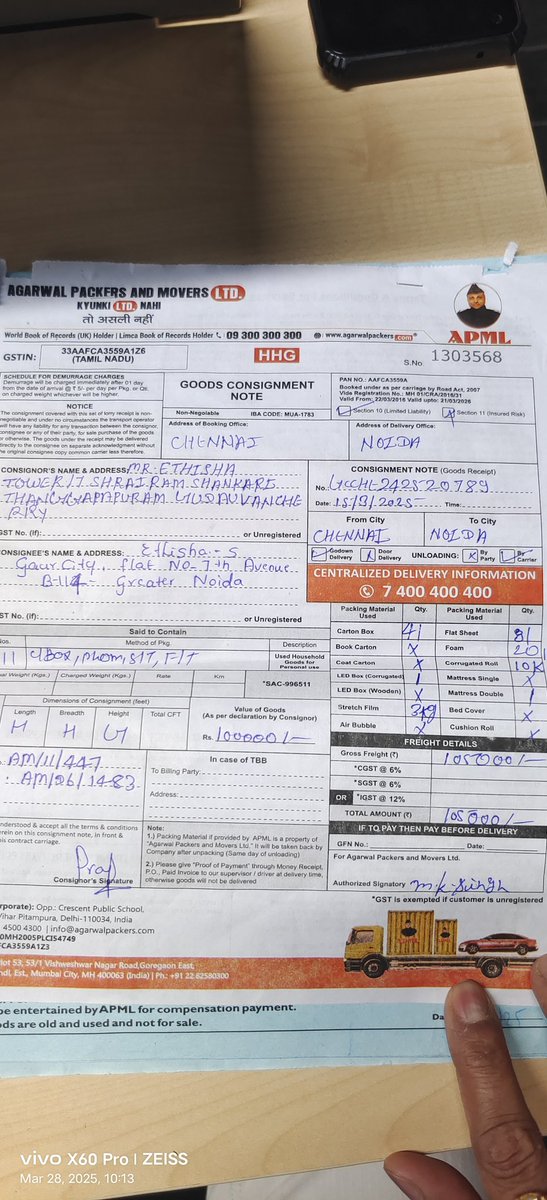 AGARWAL PACKERS AND MOVERS LTD.
KYUNKI LTD. NAHI
तो असली नहीं
APML
World Book of Records (UK) Holder | Limca Book of Records Holder 09 300 300 300 www.agarwalpackers.com
GSTIN: 33AAFCA3559A1Z6 (TAMIL NADU)
HHG
S.No 1303568
SCHEDULE FOR DEMURRAGE CHARGES
Demurrage will be charged immediately after 01 day
from the date of arrival @ ₹ 5/- per day per Pkg. or Qtl.
on charged weight whichever be higher.
NOTICE
The consignment covered with this set of lorry receipt is non-
negotiable and under no circumstances the transport operator
will have any liability for any transaction between the consignor,
consignee or any of their party, for sale purchase of the goods
or otherwise. The goods under the receipt may be delivered
directly to the consignee on separate acknowledgment without
the original consignee copy common carrier less therefore.
GOODS CONSIGNMENT NOTE
Non-Negotiable IBA CODE: MUA-1783
PAN NO.: AAFCA3559A
Booked under as per carriage by Road Act, 2007
Vide Registration No.: MH 01/CRA/2018/31
Valid From: 22/03/2018 Valid upto: 21/03/2028
Section 10 (Limited Liability) Section 11 (Insured Risk)
Address of Booking Office: CHENNAI
Address of Delivery Office: NOIDA
CONSIGNOR'S NAME & ADDRESS MR. ETHISHA
TOWER/7 SHRAIRAM SHANKARI
RRY
GST No. (if): or Unregistered
CONSIGNMENT NOTE (Goods Receipt)
No.
Date: Time:
From City To City
CHENNAI NOIDA
CONSIGNEE'S NAME & ADDRESS: Ethisha-S
Gaur City, flat No-7th Avenue
Greater Noida
ST No. (if): or Unregistered
Godown Delivery Door Delivery UNLOADING: By Party By Carrier
CENTRALIZED DELIVERY INFORMATION
7 400 400 400
Said to Contain
Nos. Method of Pkg. Description
Used Household Goods for Personal use
al Weight (Kgs.) Charged Weight (Kgs.) Rate Km *SAC-996511
Dimensions of Consignment (feet)
Length Breadth Height Total CFT
Value of Goods
(As per declaration by Consignor)
Rs. 100000/-
Packing Material Used Qty. Packing Material Used Qty.
Carton Box 41 Flat Sheet
Book Carton X Foam 20
Coat Carton X Corrugated Roll 10K
LED Box (Corrugated) 1 Mattress Single X
LED Box (Wooden) X Mattress Double 1
Stretch Film Bed Cover X
Air Bubble X Cushion Roll X
FREIGHT DETAILS
Gross Freight (₹) 105000/-
*CGST @ 6%
*SGST @ 6%
OR *IGST @ 12%
TOTAL AMOUNT (₹) 105000/-
AM/11/447
: AM/26/1483
In case of TBB
To Billing Party:
Address:
IF TO PAY THEN PAY BEFORE DELIVERY
GFN No.: Date:
For Agarwal Packers and Movers Ltd.
Authorized Signatory
understood & accept all the terms & conditions
erein on this consignment note, in front &
this contract carriage.
Consignor's Signature
Note:
1.) Packing Material if provided by APML is a property of
"Agarwal Packers and Movers Ltd." It will be taken back by
Company after unpacking (Same day of unloading)
2.) Please give "Proof of Payment" through Money Receipt,
P.O., Paid Invoice to our supervisor / driver at delivery time,
otherwise goods will not be delivered
*GST is exempted if customer is unregistered
rporate): Opp.: Crescent Public School,
Vihar Pitampura, Delhi-110034, India
4500 4300 | info@agarwalpackers.com
0MH2005PLCI54749
FCA3559A1Z3
lot 53, 53/1 Vishweshwar Nagar Road, Goregaon East,
ndl, Est., Mumbai City, MH 400063 (India) | Ph.: +91 22 62580300
be entertained by APML for compensation payment.
ods are old and used and not for sale.
Da
vivo X60 Pro | ZEISS
Mar 28, 2025, 10:13